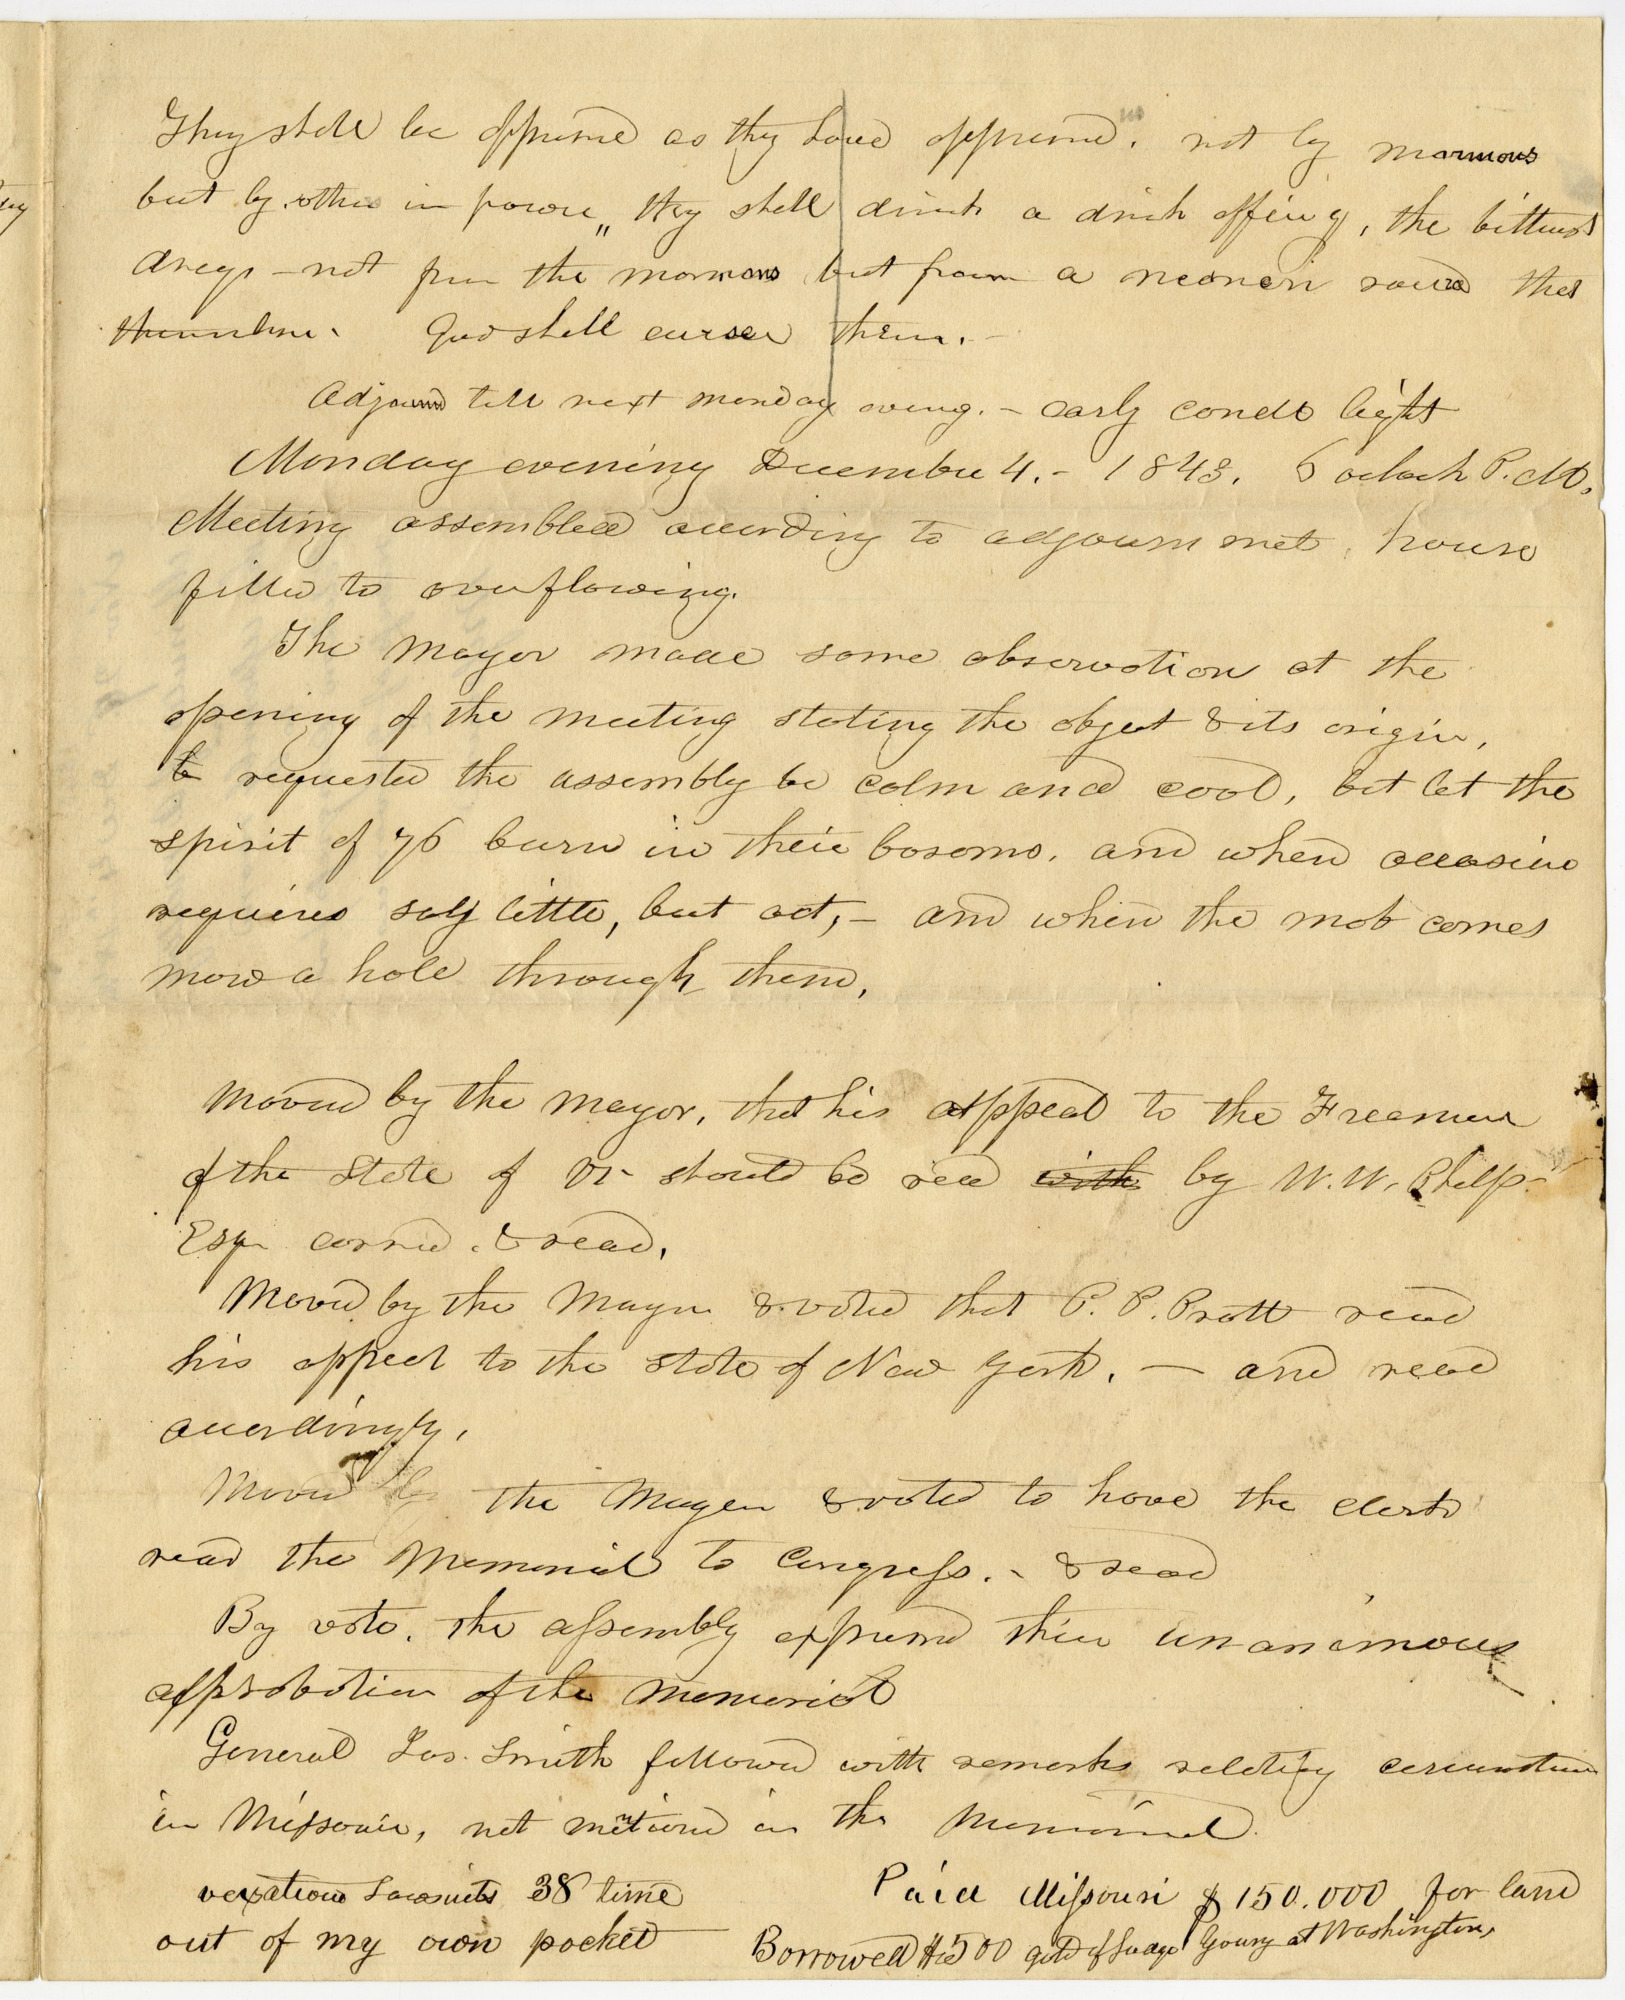 They shall be oppressed as they have oppressed. not by mormons
but by others in power,, they shall drink a drink offering, the bitterest
dregs - not from the mormons but from a meaner source than
themselves. God shall curse them. -
Adjourned till next monday evening. - early candle light
Monday evening December 4. - 1843. 6 oclock P. M.
Meeting assembled according to adjournment, house
filled to overflowing.
The mayor made some observation at the
opening of the meeting stating the object & its origin,
& requested the assembly be calm and cool, but let the
spirit of 76 burn in their bosoms. and when occasion
requires say little, but act, - and when the mob comes
mow a hole through them,
Moved by the mayor, that his appeal to the Freemen
of the State of Vt should be read with by W. W. Phelps -
Esqr carried. & read.
Moved by the Mayor & voted that P. P. Pratt read
his appeal to the state of New York. - and read
accordingly.
Moved by the Mayor & voted to have the clerk
read the Memorial to Congress. - & read
By vote. the assembly expressed their unanimous
approbation of the memorial
General Jos. Smith followed with remarks relating circumstances
in Missouri, not mentioned in the memorial.
vexatious Lawsuits 38 time
Paid Missouri $150.000 for land
out of my own pocket
Borrowed $500 gold of Judge Young at Washington,